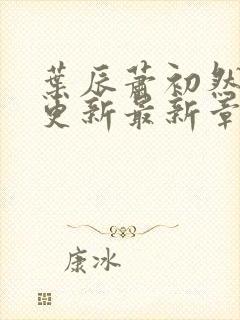 葉辰蕭初然
更新最新章
康冰